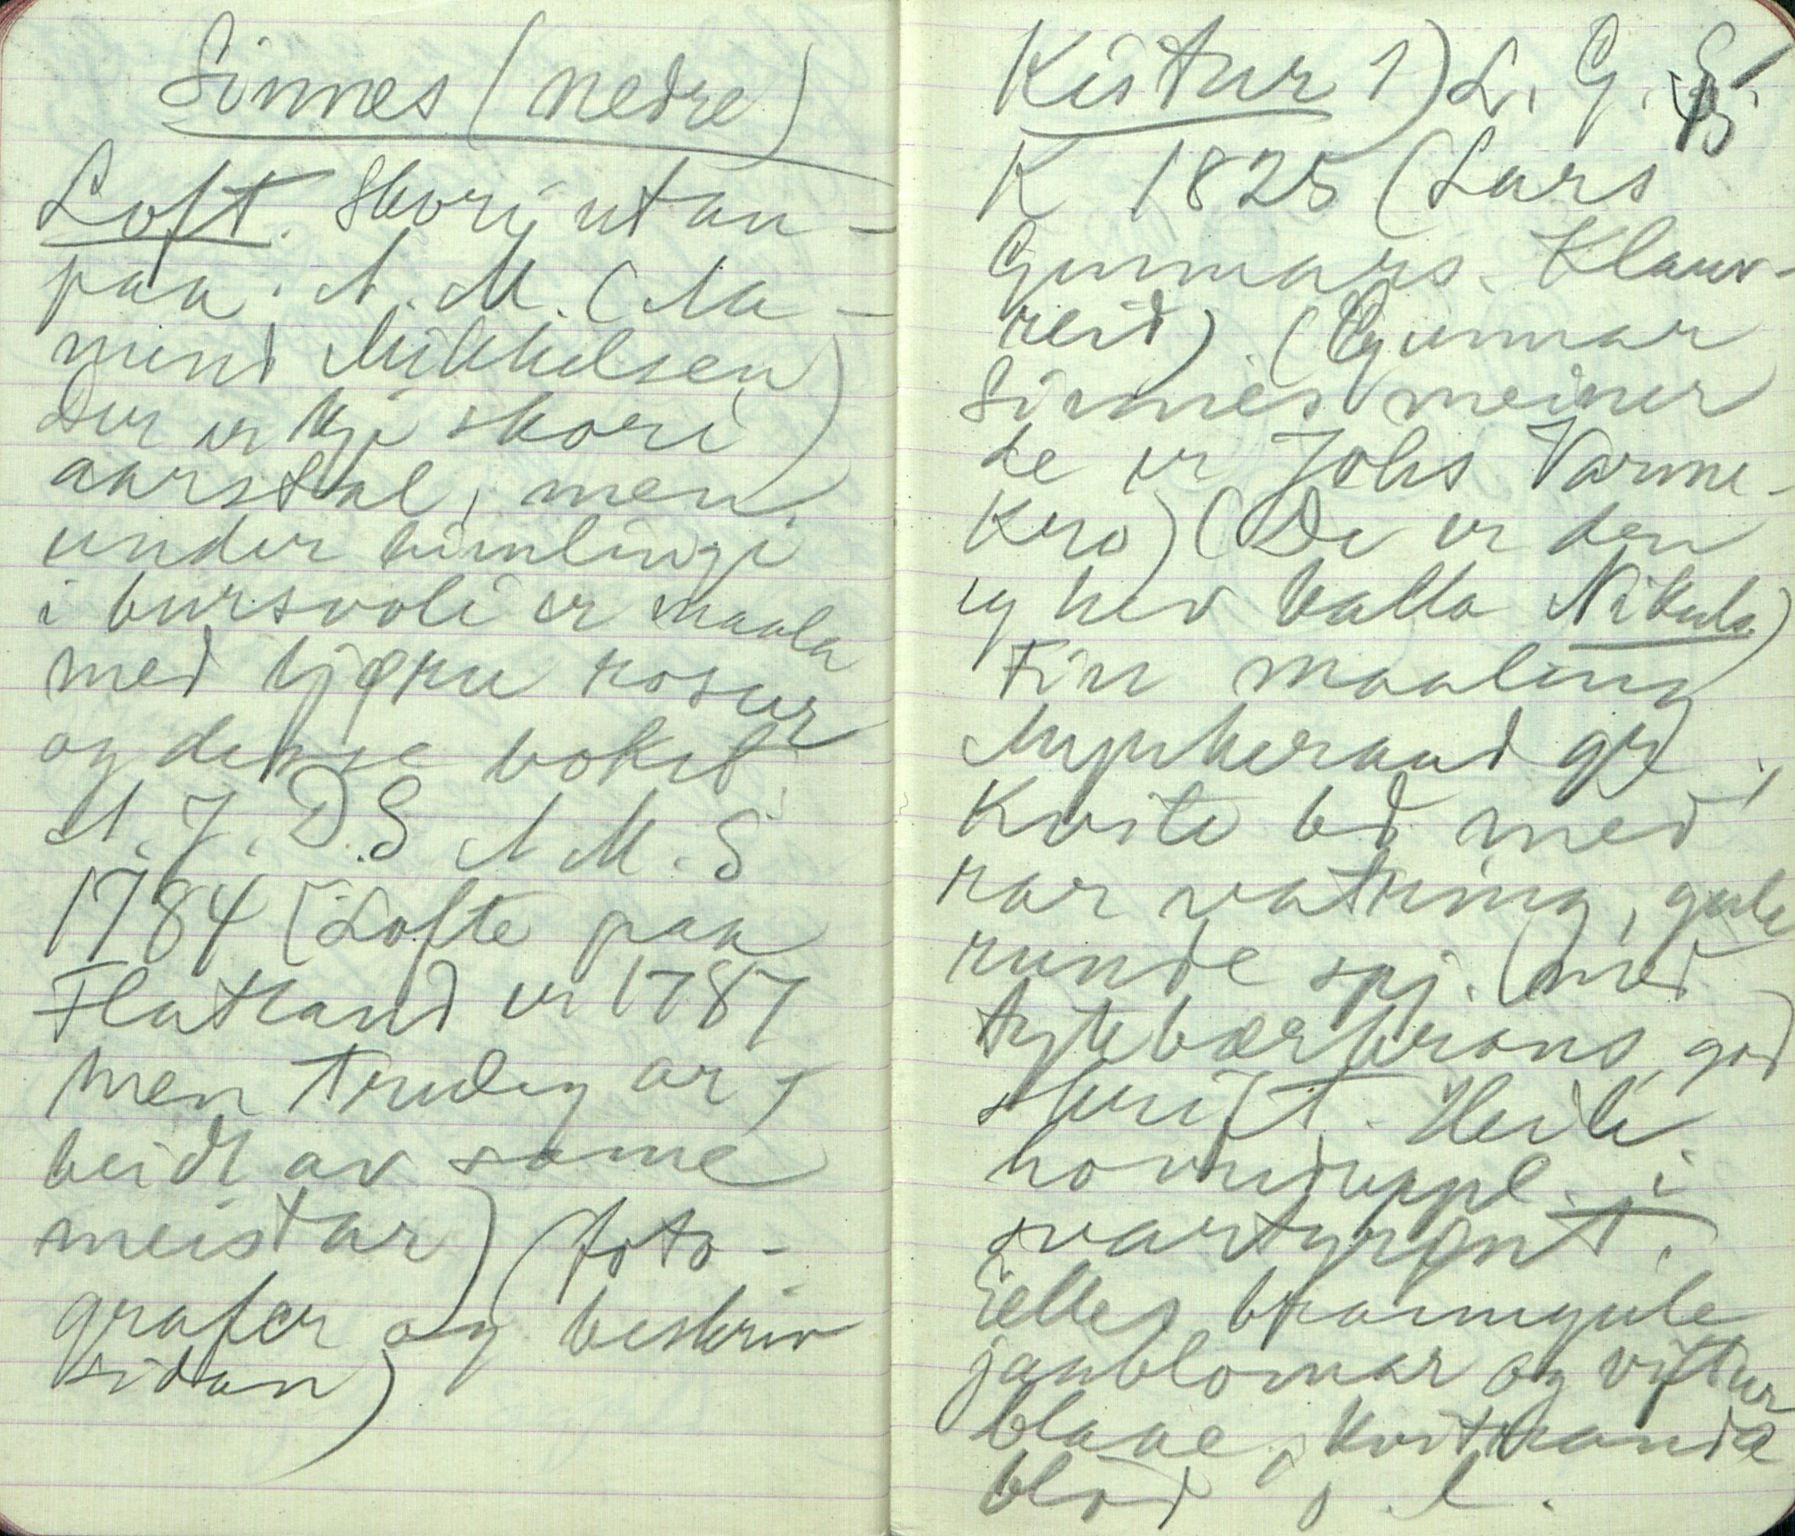 Sinnes (nedre)
Loft. Skori utan-
paa. A. M. (Aa-
mund Mikkelsen)
Der er kje skori
aarstal, men
under himlingi
i bursvoli er maala
med tjøru rosur
og desse bokst.
A. J. D. S A M. S
1784 (Lofte paa
Flatland er 1787
men truleg ar-
beidt av same
meistar) (foto-
grafer og beskriv
sidan)
Kistur 1) L. G. S.
K 1825 (Lars
Gunnars. Klauv-
reid). (Gunnar
Sinnes meiner
de er Johs Varme-
Kro) (De er den
eg hev kalla Nikuls)
Fin maaling
Myrkeraud gr.
Kvite bd med
rar vatring, gule
runde spj. (med
tytebærkrans, god
skrift. Heile
hovuduppl. i
svartgrønt.
Elles brarmgule
jaublomar og viftur
blaae, kvitkanda
blad o. l.